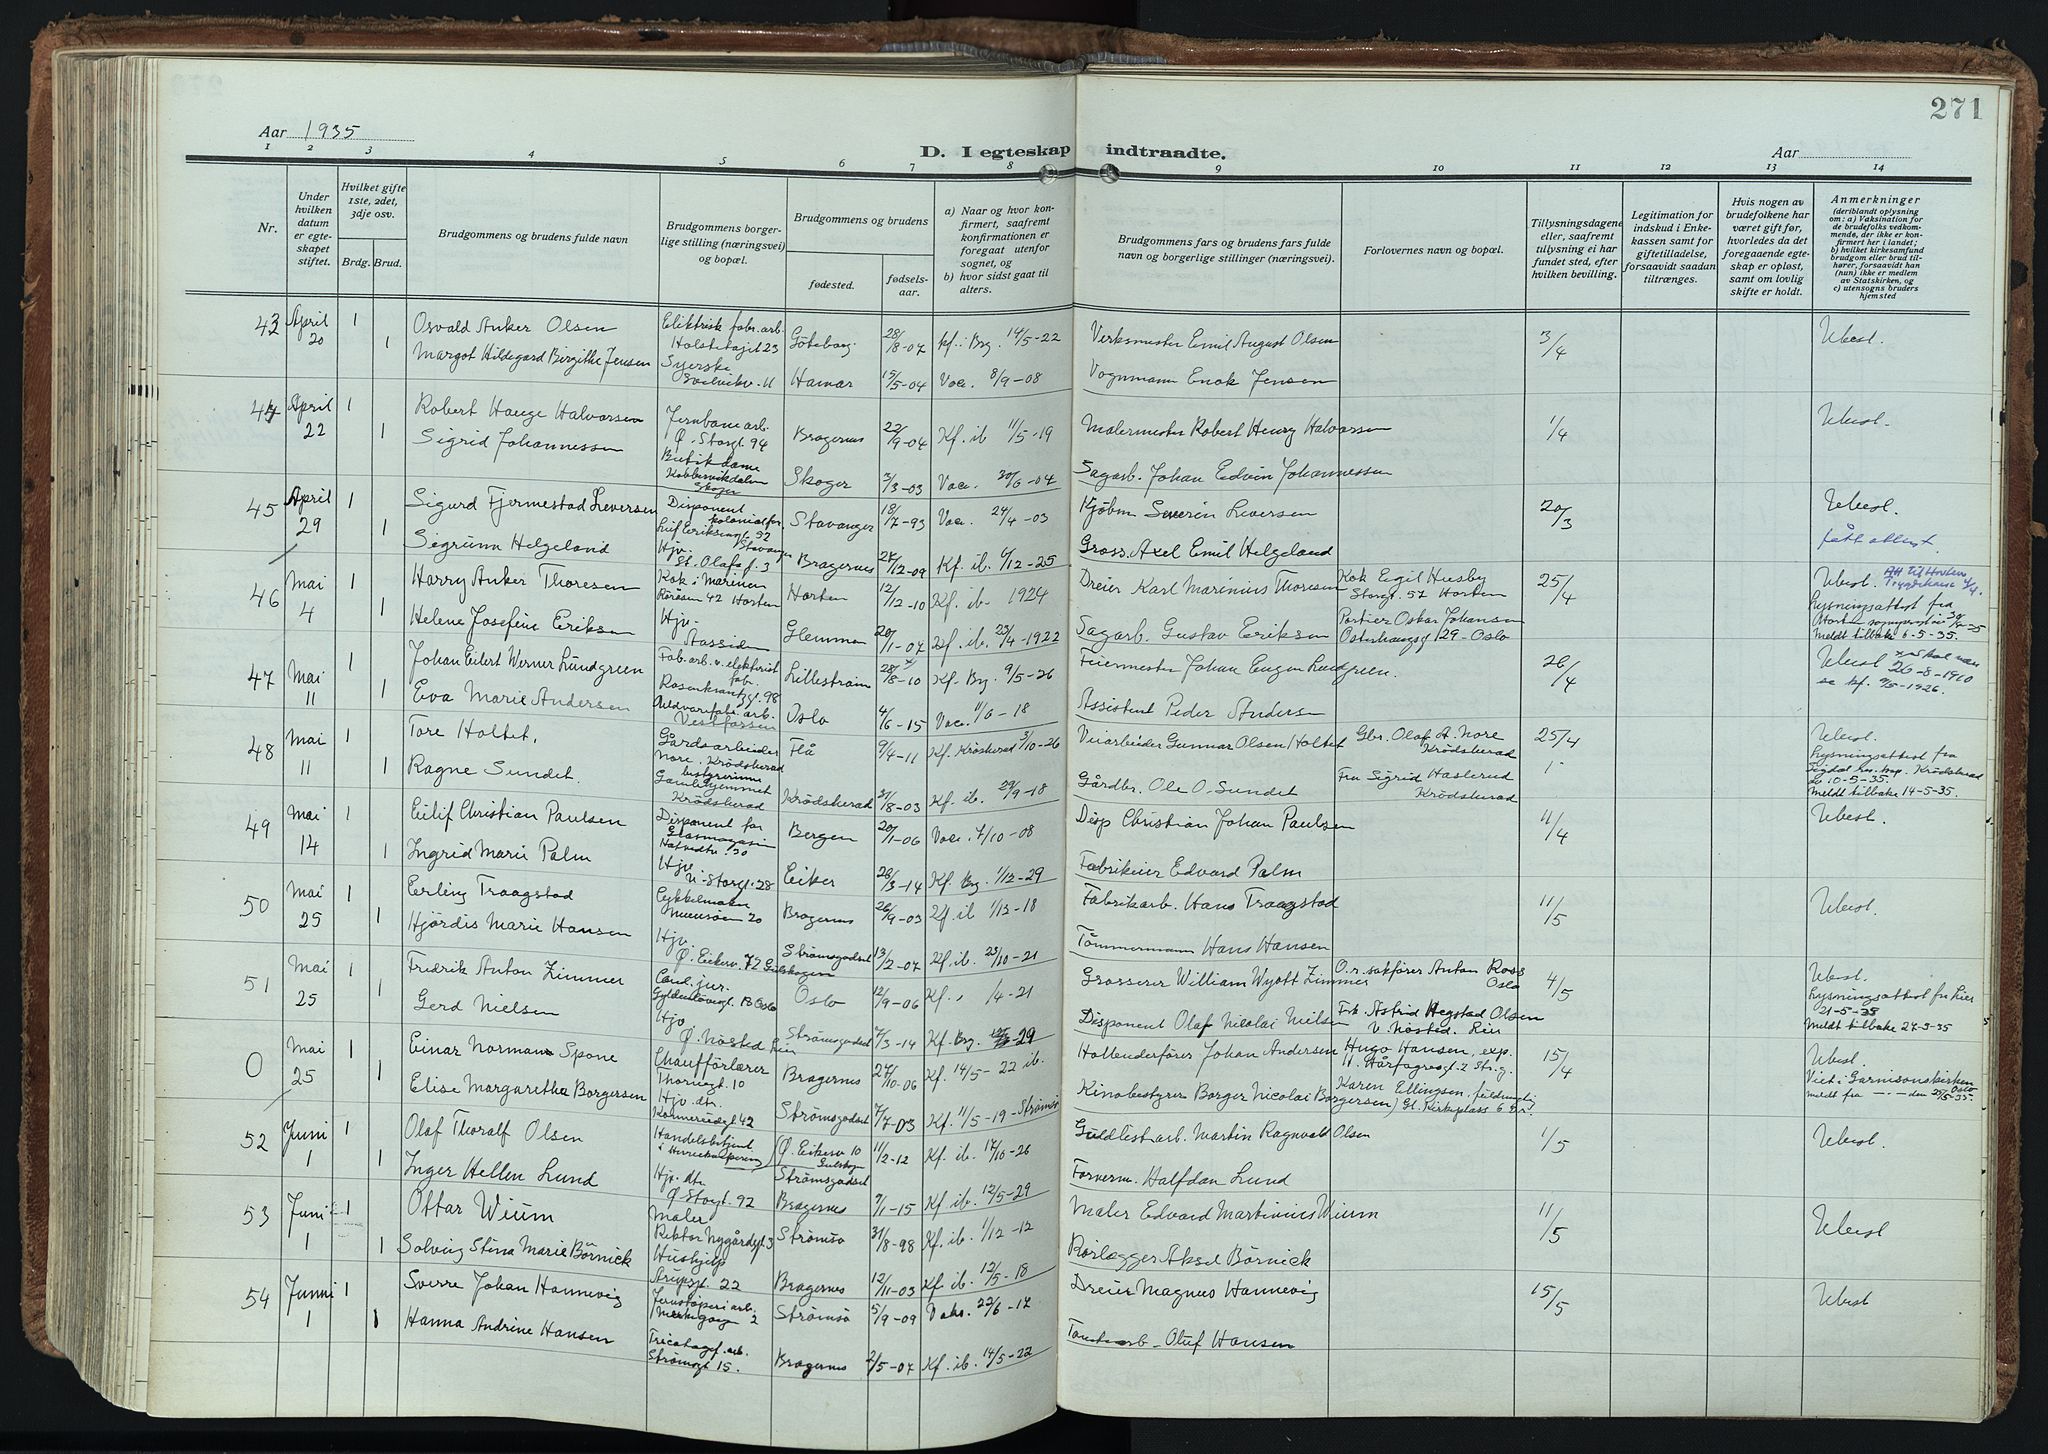 271
Aar 1935
D. I egteskap indtraadte.
Aar
1 2 3 4 5 6 7 8 9 10 11 12 13 14
Nr.
Under hvilken datum er egteskapet stiftet.
Hvilket gifte 1ste, 2det, 3dje osv.
Brdg. Brud.
Brudgommens og brudens fulde navn
Brudgommens borgerlige stilling (næringsvei) og bopæl.
Brudgommens og brudens
fødested.
fødselsaar.
a) Naar og hvor konfirmert, saafremt konfirmationen er foregaat utenfor sognet, og
b) hvor sidst gaat til alters.
Brudgommens fars og brudens fars fulde navn og borgerlige stillinger (næringsvei).
Forlovernes navn og bopæl.
Tillysningsdagene eller, saafremt tillysning ei har fundet sted, efter hvilken bevilling.
Legitimation for indskud i Enkekassen samt for giftetilladelse, forsaavidt saadan tiltrænges.
Hvis nogen av brudefolkene har været gift før, hvorledes da det foregaaende egteskap er opløst, samt om lovlig skifte er holdt.
Anmerkninger
(deriblandt oplysning om: a) Vaksination for de brudefolks vedkommende, der ikke er konfirmert her i landet;
b) hvilket kirkesamfund brudgom eller brud tilhører, forsaavidt han (hun) ikke er medlem av Statskirken, og
c) utensogns bruders hjemsted
43 April 20 1 Osvald Anker Olsen Elektrisk fabr. arb. Göteborg 28/8-07 Kf. i Brg. 14/5-22 Verksmester Emil August Olsen 3/4 Ubest.
1 Margot Hildegard Birgitte Jensen Syerske Hamar 15/5-04 Vac. 8/9-08 Vognmann Enok Jensen
44 April 22 1 Robert Hauge Halvorsen Jernbanearb. Ø. Storgt 94 Bragernes 22/9-04 Kf. ib 11/5-19 Malermester Robert Henry Halvorsen 1/4 Ubest.
1 Sigrid Johannessen Butikdame Kobbervikdalen Skoger Skoger 3/3-03 Vac. 30/6-04 Sagarb. Johan Edvin Johannessen
45 April 29 1 Sigurd Fjermestad Leversen Disponent Leif Eriksensgt 52 Stavanger Stavanger 18/7-93 Vac. 24/4-03 Kjøbm Severin Leversen 20/3 Ubest.
1 Sigrunn Helgeland Hjv. St. Olafs g. 3 Bragernes 27/12-09 Kf. ib. 6/12-25 Gross. Axel Emil Helgeland fått attest.
46 Mai 4 1 Harry Anker Thoresen Kok i Marinen Rørosen 42 Horten Horten 12/12-10 Kf. ib. 1924 Dreier Karl Marinius Thoresen Kok Eigil Husby Storgt. 57 Horten 25/4 Ubest.
Lysningsattest fra
1 Helene Josefine Eriksen Hjv. Aassiden Glemmen 20/1-07 Kf. ib. 23/4-1922 Sagarb. Gustav Eriksen Portier Oskar Johansen Osterhausgt 29-Oslo
Meldt tilbake 6-5-35.
47 Mai 11 1 Johan Eilert Werner Lundgreen Fab. arb. v. elektrisk fab. Rosenkrantzgt. 98 Lillestrøm 28/8-10 Kf. Brg. 9/5-26 Feiermester Johan Eugen Lundgreen. 26/4 Ubest
26-8-1910
se kf. 9/5-1926.
1 Eva Marie Andersen Vestfossen Oslo 4/6-15 Vac. 11/6-18 Assistent Peder Andersen
48 Mai 11 1 Tore Holtet. Gårdsarbeider Nore, Krødsherad Flå 9/4-11 Kf. Krødsherad 3/10-26 Veiarbeider Gunnar Olsen Holtet Gbr. Olaf A. Nore Krødsherad 25/4 Ubest.
Lysningsattest fra
Sigdal res. kap. Krødsherad
10-5-35.
1 Ragne Sundet. bestyrerinne Gamlehjemmet Krødsherad Krødsherad 31/8-03 Kf. ib. 29/9-18 Gårdbr. Ole O. Sundet Fru Sigrid Haslerud Krødsherad
Meldt tilbake 14-5-35.
49 Mai 14 1 Eilif Christian Paulsen Disponent for Glasmagasin Bergen 20/1-06 Vac. 7/10-08 Disp Christian Johan Paulsen 4/4 Ubest.
1 Ingrid Marie Palm Hjv N. Storgt. 28 Eiker 28/3-14 Kf. Brg. 1/12-29 Fabrikeier Edvard Palm
50 Mai 25 1 Erling Traagstad Bragernes 26/9-03 Kf. ib 1/12-18 Fabrikarb. Hans Traagstad 11/5 Ubest.
1 Hjørdis Marie Hansen Hjv. Ø. Eikerv. 72 Gulskogen Strømsgodset 13/2-07 Kf. ib. 23/10-21 Tømmermann Hans Hansen
51 Mai 25 1 Fredrik Anton Zimmer Cand. jur. Gyldenløvesgt. 13 Oslo Oslo 12/9-06 Kf. /4-21 Grosserer William Wyatt Zimmer O.r. sakfører Anton Ross Oslo 4/5 Ubest.
Lysningsattest fra Lier
21-5-35
1 Gerd Nielsen Hjv Ø. Nøsted Lier Strømsgodset 7/3-14 Kf. Brg. 29 Disponent Olaf Nicolai Nielsen Frk. Astrid Hegstad Olsen V. Nøsted. Lier
Meldt tilbake 27-5-35
0 Mai 25 1 Einar Normann Spone Chaufførlærer Thornegt. 10 Bragernes 27/10-06 Kf. 14/5-22 ib. Hollenderfører Johan Andersen Hugo Hansen, exp. H. Hårfagresgt. 2 Str.g. 15/4 Ubest.
Viet i Garnisonskirken Oslo
1 Elise Margaretha Borgersen Hjv. dtr. Konnerudgt 42 Strømsgodset 7/7-03 Kf. 11/5-19-Strømsø Kinobestyrer Borger Nicolai Borgersen Karen Ellingsen, Gl. Kirkeplass 6 Dr.
52 Juni 1 1 Olaf Thoralf Olsen Handelsbetjent Ø. Eikerv 10 Gulskogen 11/2-12 Kf. ib. 17/10-26 Guldlistarb. Martin Ragnvald Olsen 1/5 Ubest.
1 Inger Hellen Lund Hjv. dtr. Ø Storgt. 92 Strømsgodset Bragernes 9/1-15 Kf ib. 12/5-29 Formerm. Halfdan Lund
53 Juni 1 1 Ottar Wium Maler Rektor Nygårdsgt. 3 Strømsø 31/8-98 Kf. ib. 1/12-12 Maler Edvard Martinius Wium 11/5 Ubest
1 Solveig Stina Marie Børnick Hushjelp Arupsgt. 22 Bragernes 12/11-03 Kf ib. 12/5-18 Rørlegger Aksel Børnick
54 Juni 1 1 Sverre Johan Hannevig Jernstøperiarb. Strømsø 5/9-09 Vaks. 22/6-17 Dreier Magnus Hannevig 15/5 Ubest
1 Hanna Andrine Hansen Tricotagef. arb. Strømsgt 15. Bragernes 2/5-07 Kf. ib. 14/5-22 Oluf Hansen